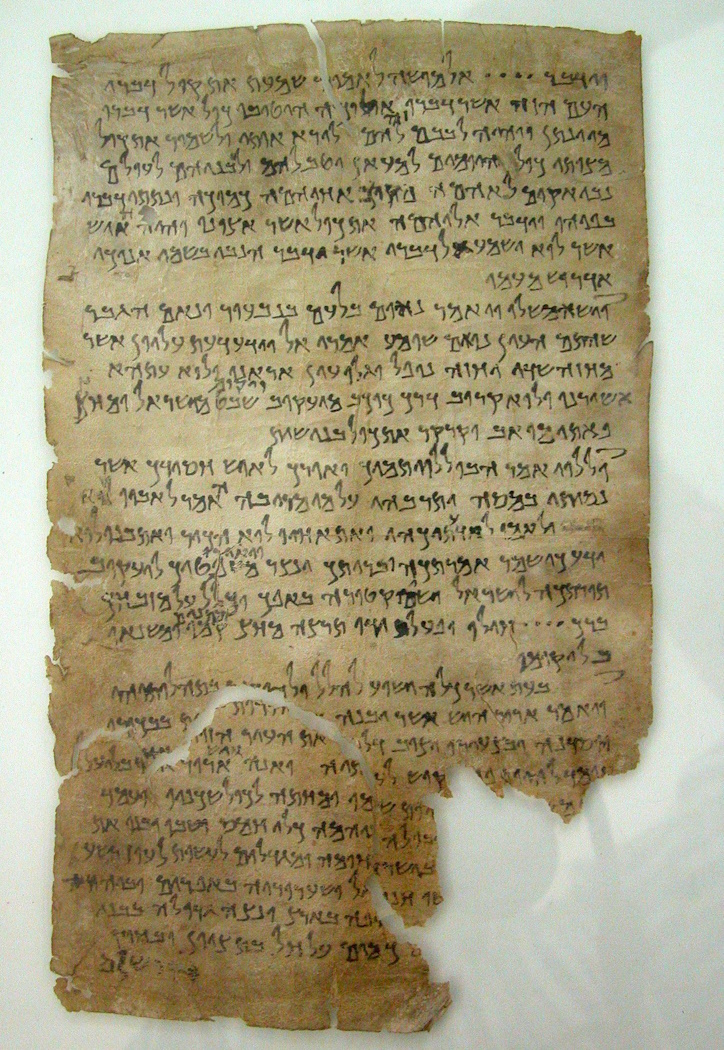 וידבר •••• אל מושה לאמור שמעת את קול דברי
העם הזה אשר דברו אליכה היטיבו כול אשר דברו
מי ינתן ויהיה לבבם זה להם לירא אותי ולשמור את כול
מצותי כול היומים למעאן יטב להם ולבניהם לעולם
נבי אקים לאהמה מקרב אחיהמה כמוכה ונתתי דברי
בפיהו וידבר אליהמה את כול אשר אצונו והיה האיש
אשר לוא ישמע אל דברי אשר ידבר הנבי בשמי אנוכי
אדרוש מעמו
וישא משלו ויאמר נאום בלעם בנבעור ונאם הגבר
שהתם העין נואם שומע אמרי אל וידע דעת עליון אשר
מחזה שדי יחזה נופל וגלו עין אראנו ולוא עתהא
אשורנו ולוא קרוב דרך כוכב מיעקוב ויקום שבט מישראל ומחץ
פאתי מואב וקרקר את כול בני שית
וללוי אמר הבו ללוי תמיך ואורך לאיש חסידך אשר
נסיתו במסה ותרבהו על מי מריבה האמר לאביו לוא
ולאמו לוא ידעתיכהו ואת אחיו לוא הכיר ואת בנו לוא
ידע כי שמר אמרתכה ובריתך ינצר ויאירו משפטיך ליעקוב
תורתכה לישראל ישים קטורה באפך וכליל על מזבחך
ברך •••• חילו ופעל ידו תרצה מחץ מתנים קמו ומשנאו
בל יקומו
בעת אשר כלה ישוע להלל ולהודות בתהלותיהו
ויאמר ארור היש אשר יבנה בבכורו
ייסדנה ובצעירו יציב דלתיה ואנה איש ארור אחד בליעל
יקוש ומחתה לכול שכניו ועמד
כלי חמס ושבו ובנו את
חומה ומגדלים לעשות לעוז רשע
ושערוריה באפרים וביהודה
בארץ ונצה גדולה בבני
כמים על חל בת ציון ובחוק
ירושלם